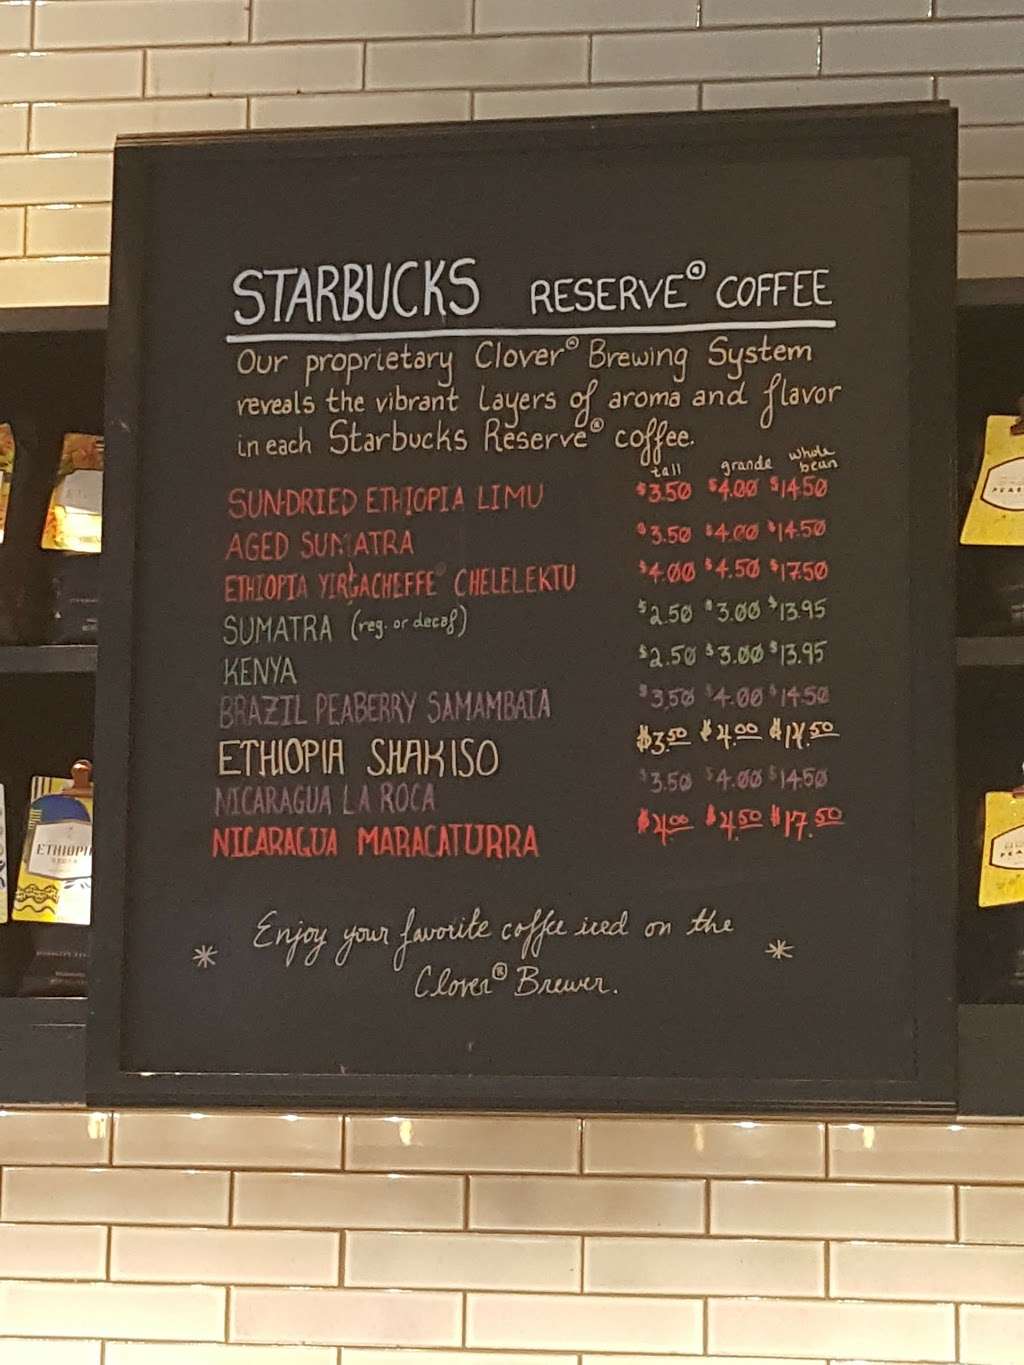 STARBUCKS RESERVE® COFFEE
Our proprietary Clover® Brewing System
reveals the vibrant layers of aroma and flavor
in each Starbucks Reserve® coffee.
tall grande whole bean
SUN-DRIED ETHIOPIA LIMU $3.50 $4.00 $14.50
AGED SUMATRA $3.50 $4.00 $14.50
ETHIOPIA YIRGACHEFFE® CHELELEKTU $4.00 $4.50 $17.50
SUMATRA (reg. or decaf) $2.50 $3.00 $13.95
KENYA $2.50 $3.00 $13.95
BRAZIL PEABERRY SAMAMBAIA $3.50 $4.00 $14.50
ETHIOPIA SHAKISO $3.50 $4.00 $14.50
NICARAGUA LA ROCA $3.50 $4.00 $14.50
NICARAGUA MARACATURRA $4.00 $4.50 $17.50
* Enjoy your favorite coffee iced on the *
Clover® Brewer.
ETHIOPI